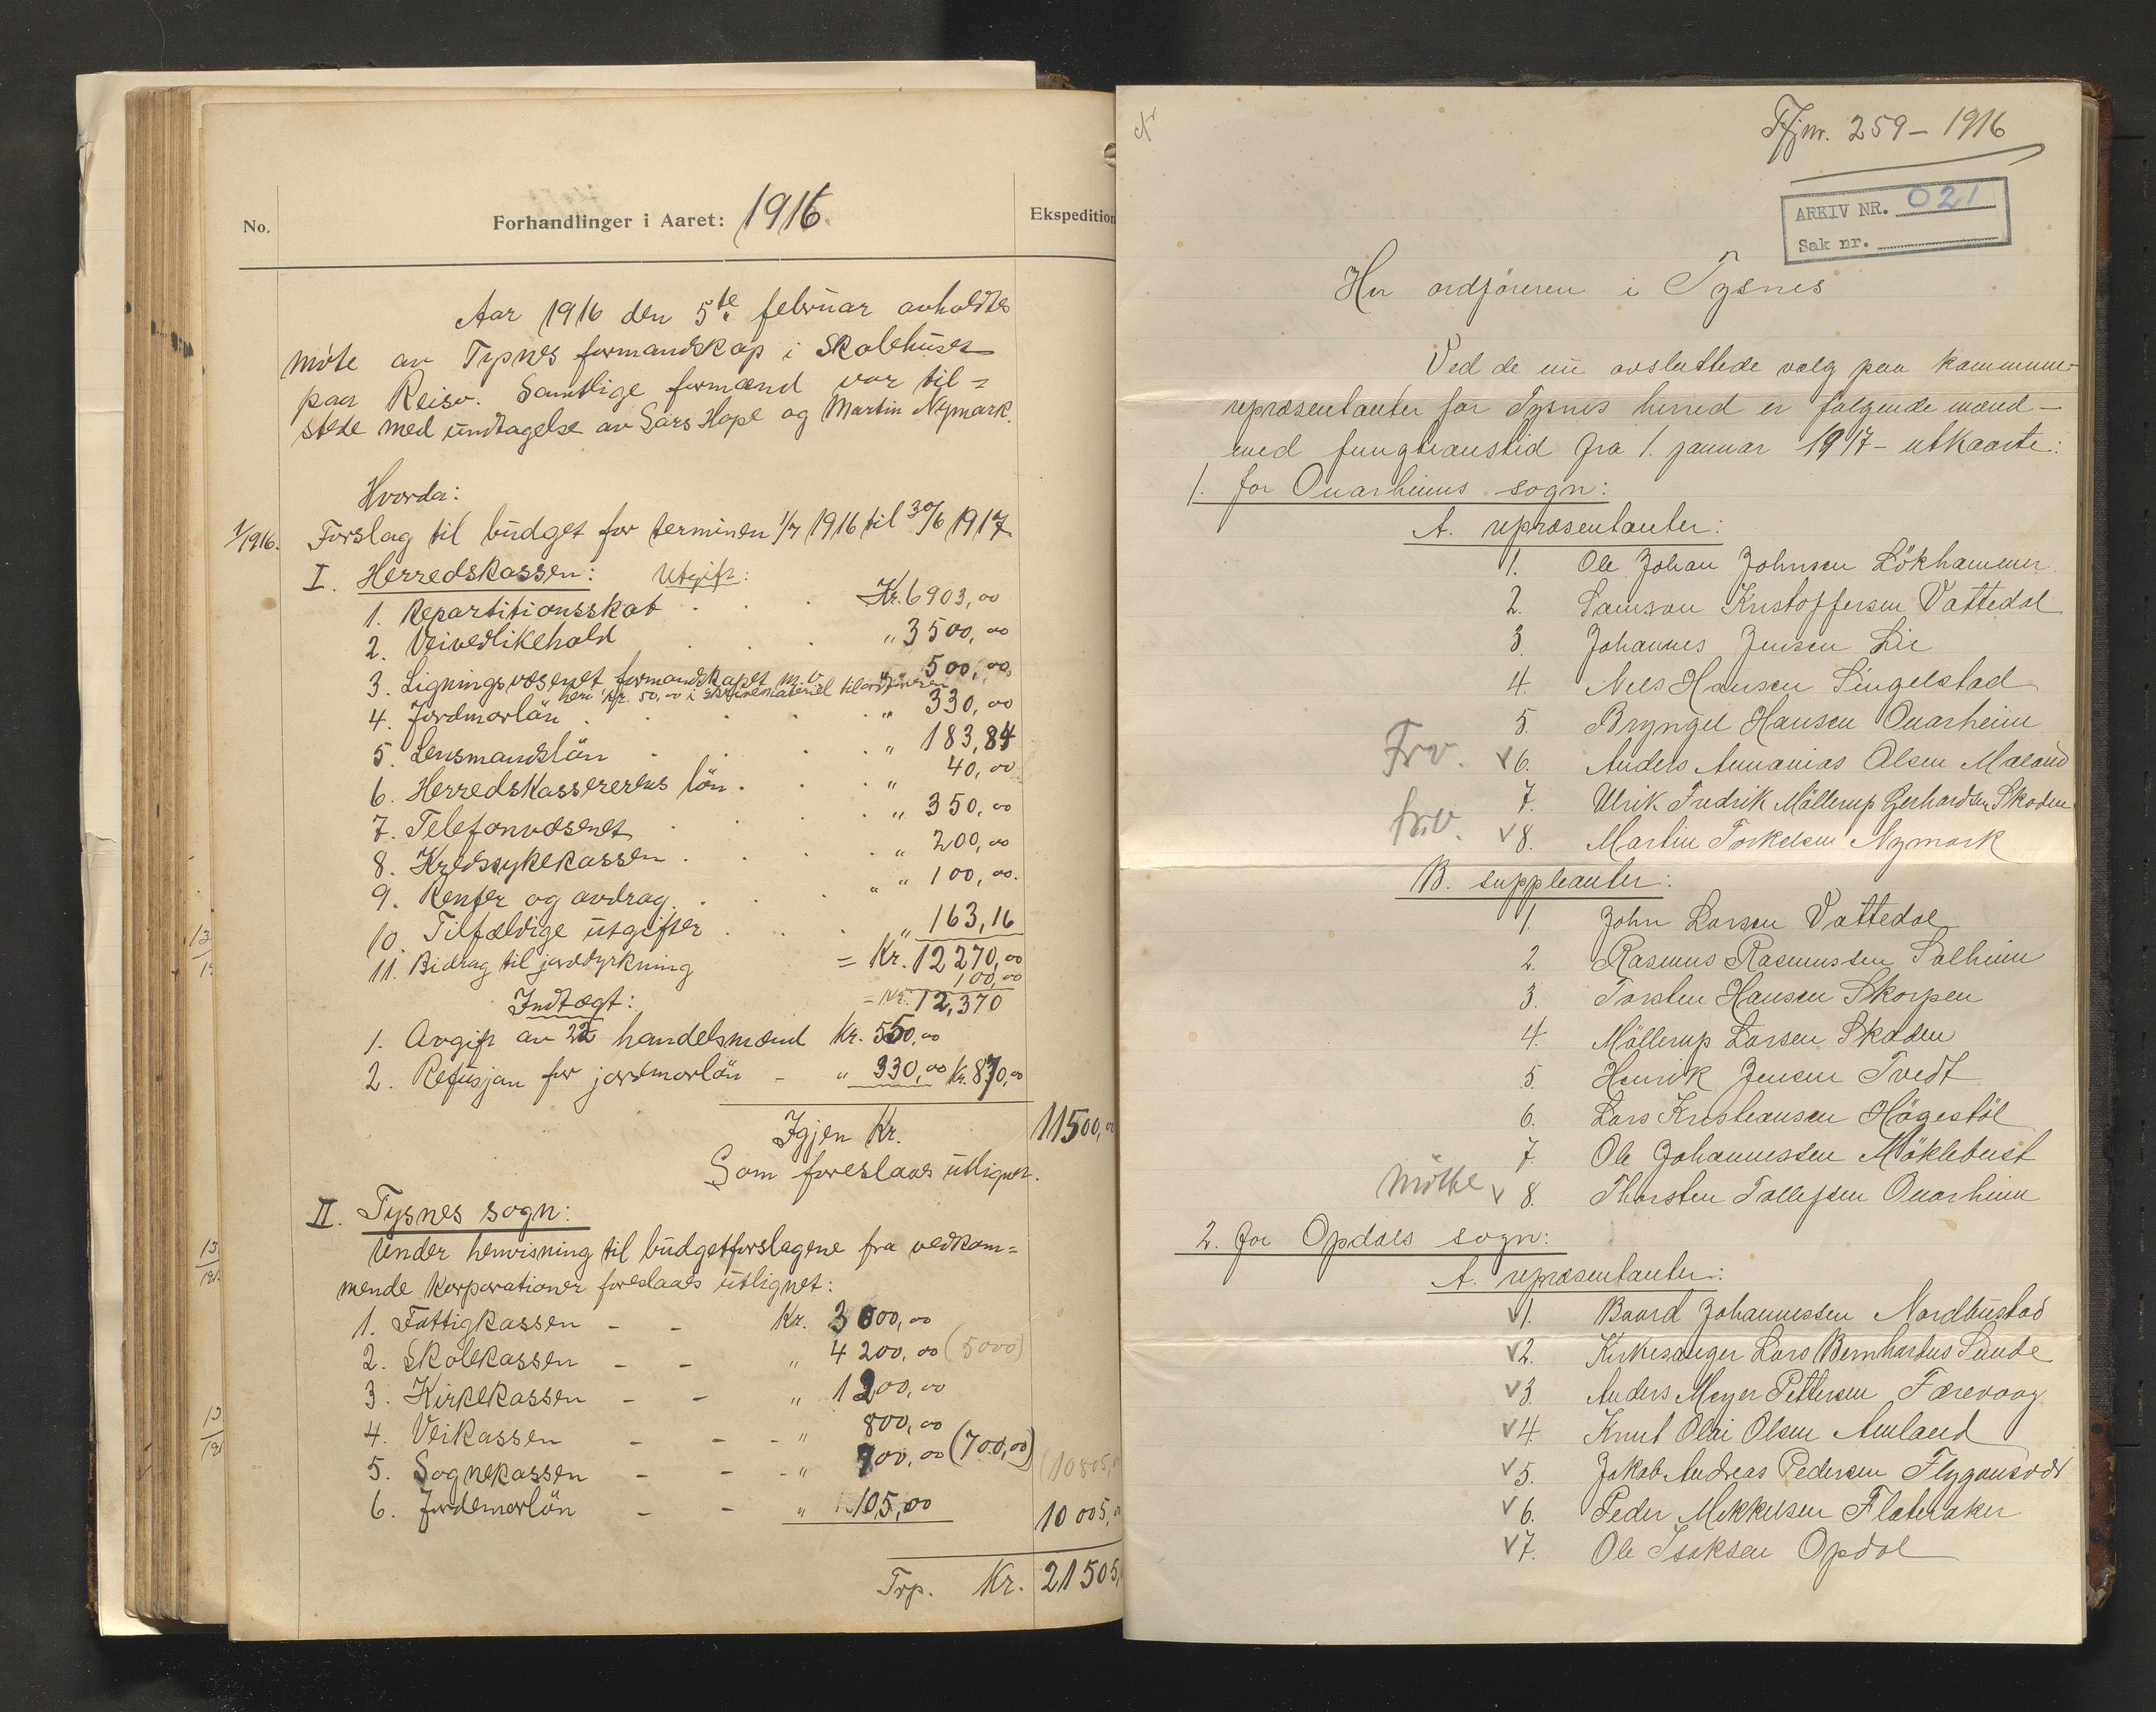 No.
Forhandlinger i Aaret: 1916.
Ekspedition
Aar 1916 den 5te februar avholdtes
møte av Tysnes formandskap i Skolehuset
paa Reiso. Samtlige formænd var til=
stede med undtagelse av Lars Hope og Martin Nymark.
Hvorda:
1/1916. Forslag til budget for terminen 1/7 1916 til 30/6 1917
I. Herredskassen: Utgift:
1. Repartitionsskat Kr. 6903,00
2. Veivedlikehold " 3500,00
3. Ligningsvæsenet formandskapet m.v. " 500,00
heri kr. 50,00 i skrivemateriel til ordføreren
4. Jordmorløn " 330,00
5. Lensmandsløn " 183,84
6. Herredskassererens løn " 40,00
7. Telefonvæsenet " 350,00
8. Kredssykekassen " 200,00
9. Renter og avdrag " 100,00
10. Tilfældige utgifter " 163,16
= Kr. 12270,00
11. Bidrag til jorddyrkning 100,00
= Kr. 12,370
Indtægt:
1. Avgift av 22 handelsmænd Kr. 550,00
2. Refusjon for jordmorløn - " 330,00 Kr. 870,00
Igjen Kr. 11500,00
Som foreslaaes utlignet.
II. Tysnes sogn:
Under henvisning til budgetforslagene fra vedkom=
mende korporationer foreslaaes utlignet:
1. Fattigkassen - - Kr. 3000,00
2. Skolekassen - - " 4200,00 (5000)
3. Kirkekassen - - " 1200,00
4. Veikassen - - - " 800,00
5. Sognekassen - - - " 700,00 (700,00) (10805,00
6. Jordemorløn - - " 105,00 10005,00
Trp. Kr. 21505,
13
13
191
13
191
Fjnr. 259 - 1916
ARKIV NR. 021
Sak nr.
Hr ordføreren i Tysnes
Ved de nu avsluttede valg paa kommune-
repræsentanter for Tysnes herred er følgende mænd -
med fungtionstid fra 1. januar 1917 - utkaarte:
1. for Onarheims sogn:
A. repræsentanter:
1. Ole Johan Johnsen Løkhammer
2. Samson Kristoffersen Vattedal
3. Johannes Jensen Lie
4. Nils Hansen Singelstad
5. Bryngel Hansen Onarheim
Frv. v 6. Anders Annanias Olsen Maland
7. Ulrik Fredrik Møllerup Gerhardsen Skaden
frv. v 8. Martin Torkelsen Nymark
B. suppleanter:
1. John Larsen Vattedal
2. Rasmus Rasmussen Solheim
3. Torsten Hansen Skorpen
4. Møllerup Larsen Skaden
5. Henrik Jensen Tvedt
6. Lars Kristiansen Høgestøl
7. Ole Johannessen Møklebust
møtte v 8. Thorsten Tollefsen Onarheim
2. for Opdals sogn:
A. repræsentanter:
v 1. Baard Johannessen Nordbustad
v 2. Kirkesanger Lars Bernhardus Sunde
v 3. Anders Meyer Pettersen Færevaag
v 4. Knut Olai Olsen Amland
v 5. Jakob Andreas Pedersen Flygansvær
v 6. Peder Mikkelsen Flateraker
v 7. Ole Isaksen Opdal